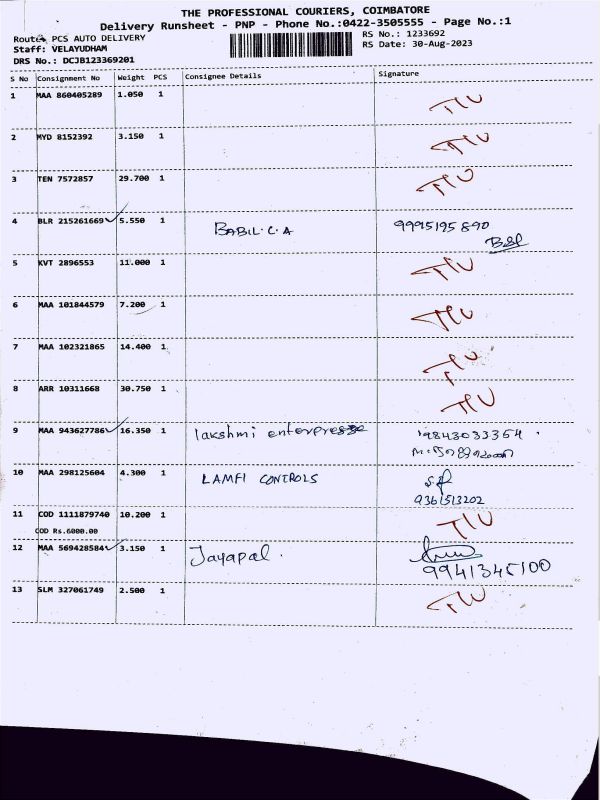 THE PROFESSIONAL COURIERS, COIMBATORE
Delivery Runsheet - PNP - Phone No.:0422-3505555 - Page No.:1
Route: PCS AUTO DELIVERY
RS No.: 1233692
Staff: VELAYUDHAM
RS Date: 30-Aug-2023
DRS No.: DCJB123369201
S No Consignment No Weight PCS Consignee Details Signature
1 MAA 860405289 1.050 1 T/U
2 MYD 8152392 3.150 1 T/U
3 TEN 7572857 29.700 1 T/U
4 BLR 215261669 5.550 1 BABIL.C.A 9995195890
5 KVT 2896553 11.000 1 T/U
6 MAA 101844579 7.200 1 T/U
7 MAA 102321865 14.400 1 T/U
8 ARR 10311668 30.750 1 T/U
9 MAA 943627786 16.350 1 lakshmi enterprese 9843033354
10 MAA 298125604 4.300 1 LAMFI CONTROLS
9361513202
11 COD 1111879740 10.200 1 T/U
COD Rs.6000.00
12 MAA 569428584 3.150 1 Jayapal.
9941345100
13 SLM 327061749 2.500 1 T/U